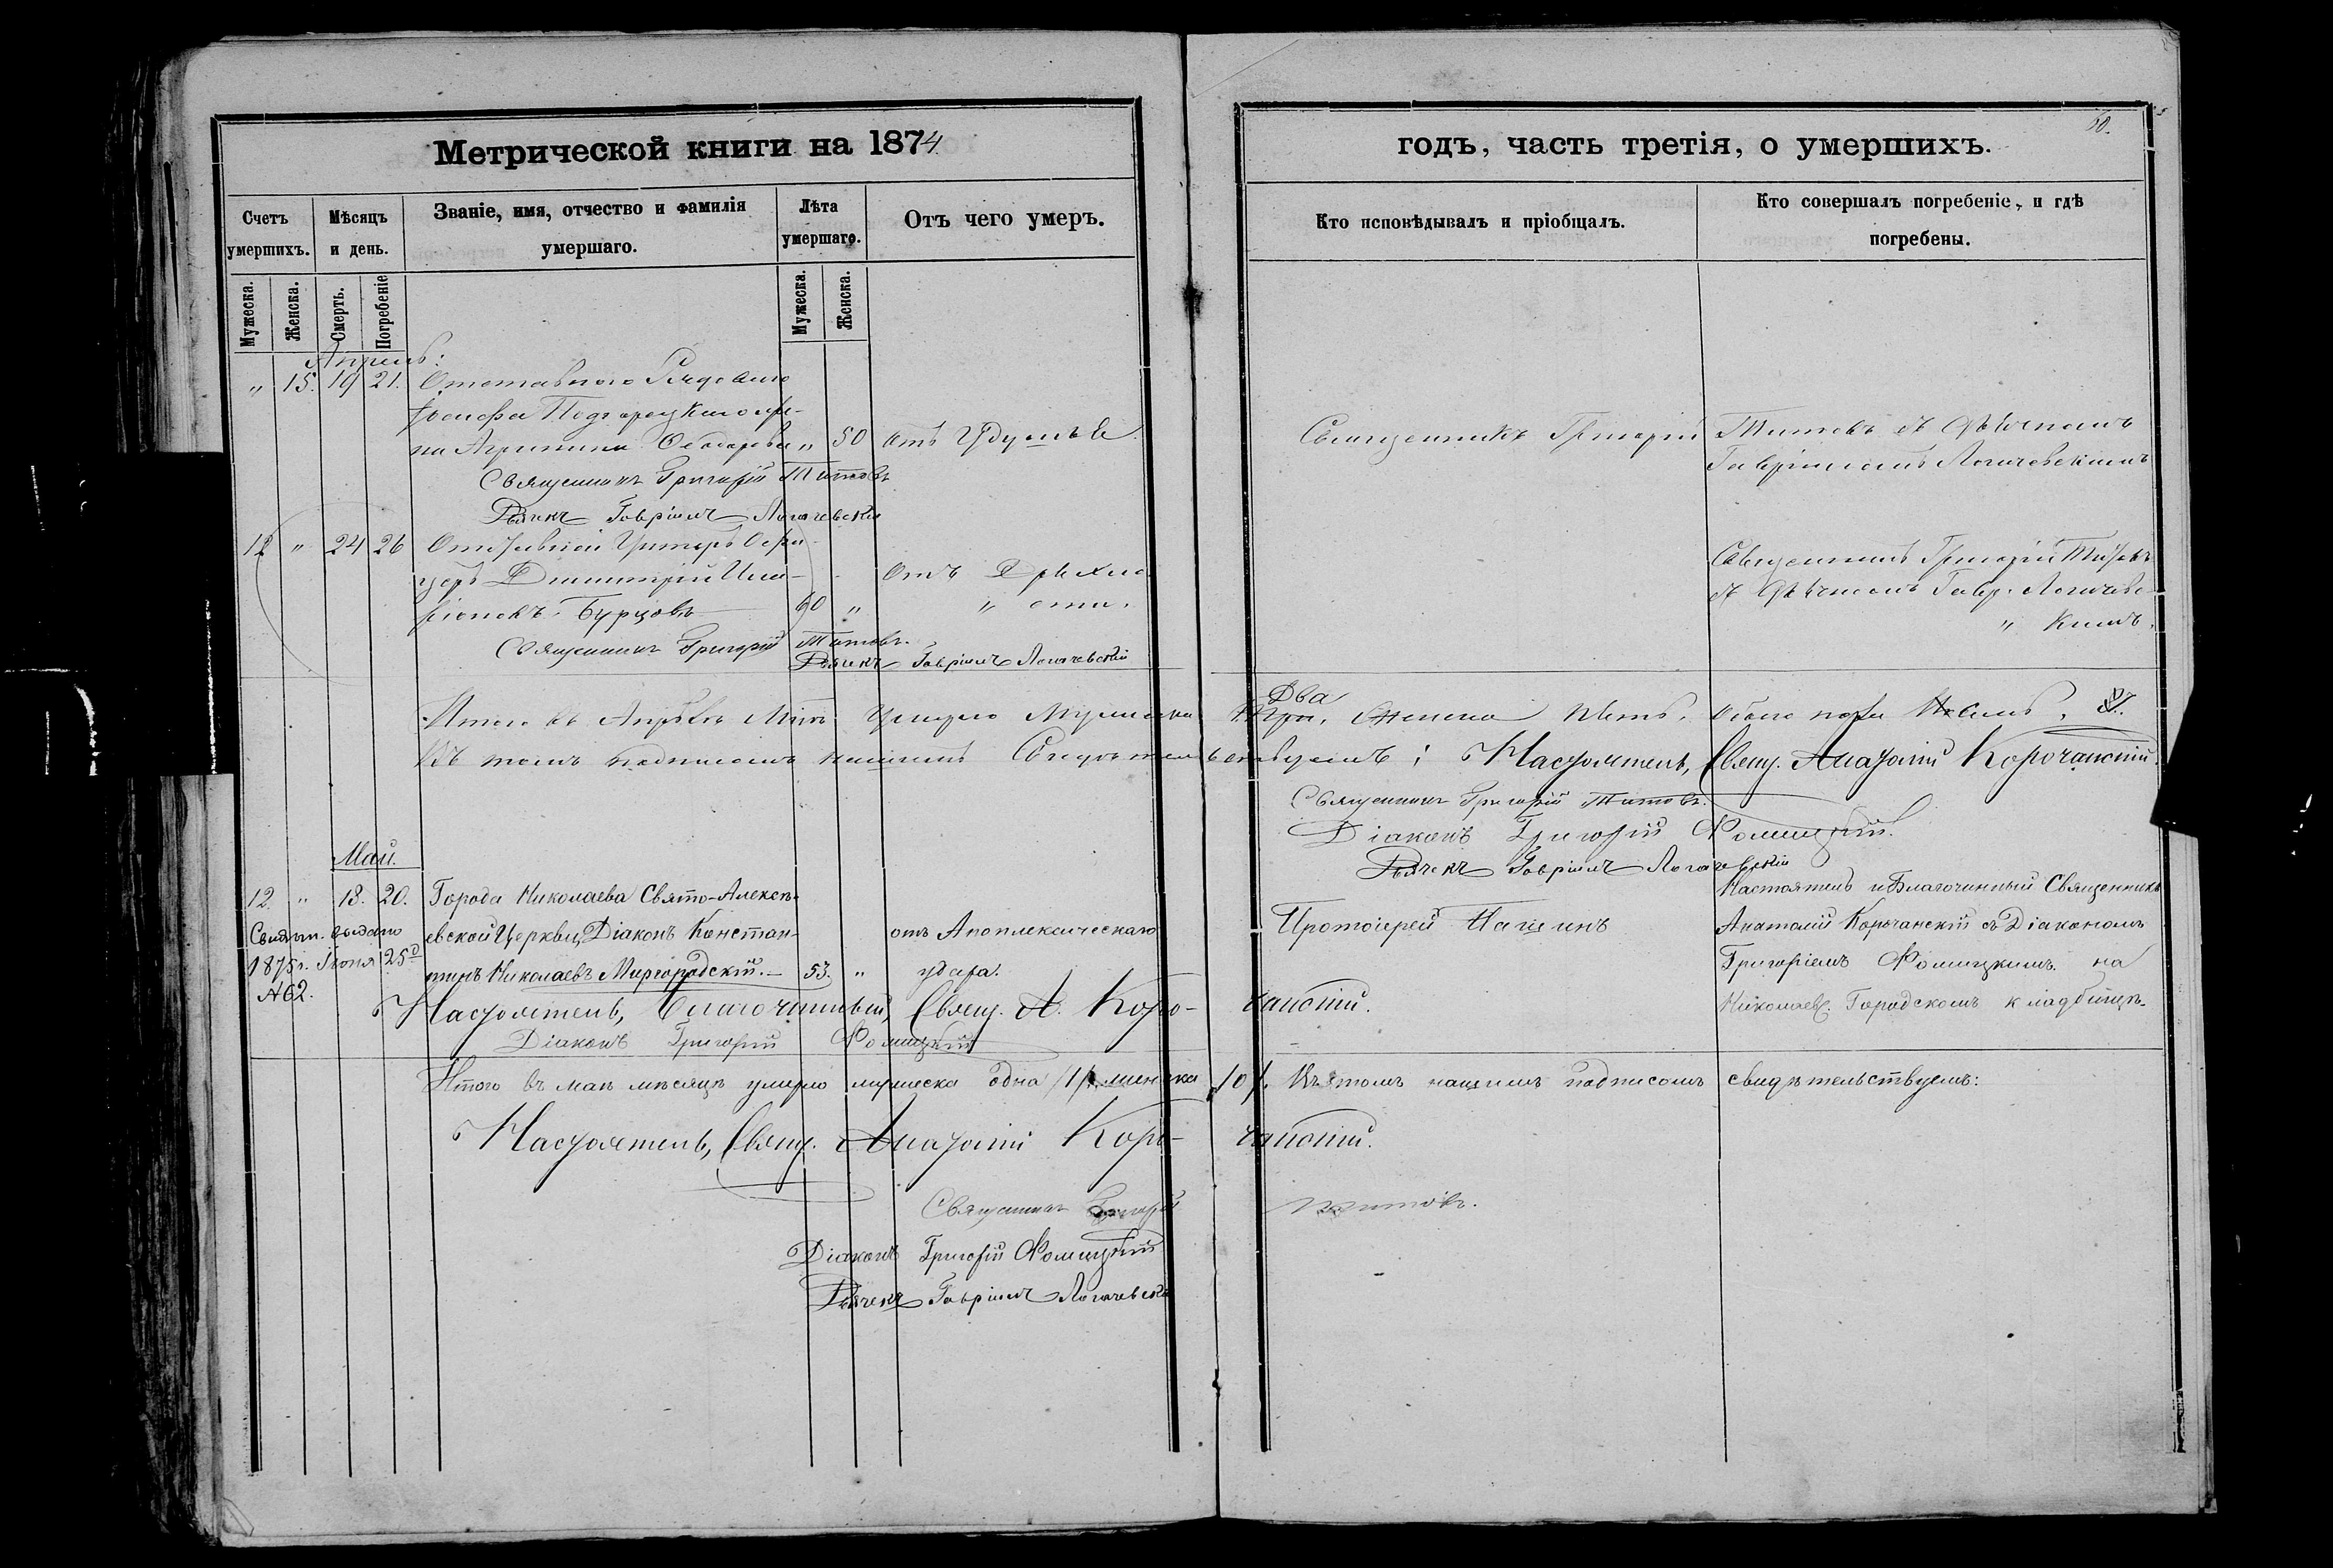 Метрической книги на 1874
годъ, часть третія, о умершихъ.
60.
Счетъ умершихъ.
Мѣсяцъ и день.
Званіе, имя, отчество и фамилія умершаго.
Лѣта умершаго.
Отъ чего умеръ.
Кто исповѣдывалъ и пріобщалъ.
Кто совершалъ погребеніе, и гдѣ погребены.
Мужеска.
Женска.
Смерть.
Погребеніе
Мужеска.
Женска.
Апрель:
" 15. 19 21. Отставнаго Рядоваго
Іосифа Подгорецкаго же-
на Агрипина " 50 отъ Удушья
Священникъ Григорій Титовъ съ Дьячкомъ
Гавріиломъ Логачевскимъ
Священникъ Григорій Титовъ
Дьячекъ Гавріилъ Логачевскій
12 " 24 26 Отставной Унтеръ Офи-
церъ Димитрій Ила-
ріоновъ Бурцовъ 60 "
отъ Дряхло
" сти.
Священникъ Григорій Титовъ
съ Дьячкомъ Гавр. Логачевс
" кимъ.
Священникъ Григорій Титовъ.
Дьячекъ Гавріилъ Логачевскій
Итого въ Апрѣлѣ умерло Мужеска Два Женска обоего пола
Въ томъ подписомъ нашимъ Свидѣтельствуемъ: Настоятель, Свящ. Анатолій Корочанскій.
Священникъ Григорій Титовъ.
Діаконъ Григорій Фомицкій.
Дьячекъ Гавріилъ Логачевскій
Май.
12. " 18. 20. Города Николаева Свято-Алексѣ-
евской Церкви, Діаконъ Констан-
тинъ Николаевъ Миргородскій.— 53. "
отъ Апоплексическаго
удара.
Свидѣт. выдано
1875г. Іюня 25д
№62.
Протоіерей Пащинъ
Настоятель и Благочинный Священникъ
Анатолій Корочанскій съ Діакономъ
Григоріемъ Фомицкимъ на
Николаев. Городскомъ кладбищѣ.
Настоятель, Благочинный, Свящ. А. Корочанскій.
Діаконъ Григорій Фомицкій
Итого въ маѣ мѣсяцѣ умерло мужеска одна /1/ женска /0/. Въ томъ нашимъ подписомъ свидѣтельствуемъ:
Настоятель, Свящ. Анатолій Корочанскій.
Священникъ Григорій Титовъ.
Діаконъ Григорій Фомицкій
Дьячекъ Гавріилъ Логачевскій